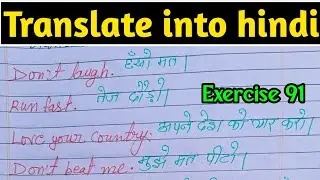 Translate into hindi
Don't laugh. हँसो मत।
Run fast. तेज दौड़ो।
Exercise 91
Love your Country. अपने देश को प्यार करो।
Don't beat me. मुझे मत पीटो।